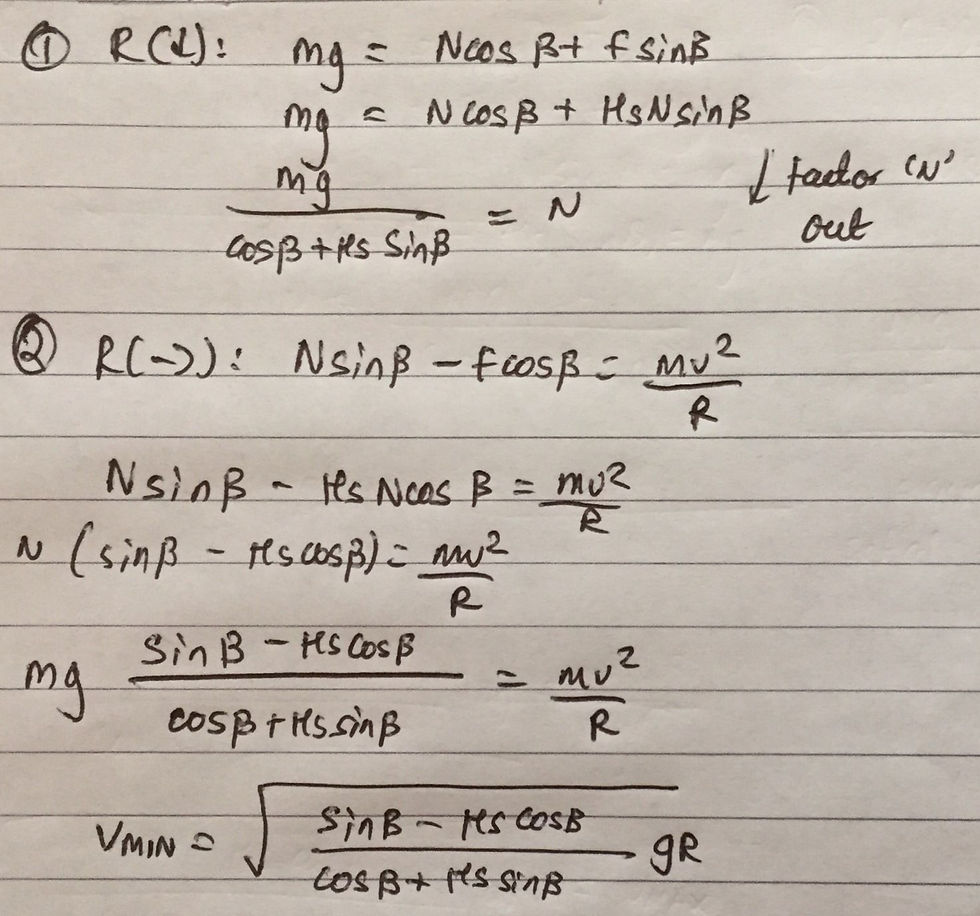 ① R(↓): mg = Ncos β + f sinβ
mg = N cosβ + μsN sinβ
↓ factor 'N' out
mg / (cosβ + μs sinβ) = N
② R(→): N sinβ - f cosβ = mv² / R
N sinβ - μs N cos β = mv² / R
N (sinβ - μs cosβ) = mv² / R
mg (sin β - μs cos β) / (cos β + μs sin β) = mv² / R
VMIN = √((sin β - μs cos β) / (cos β + μs sin β) gR)